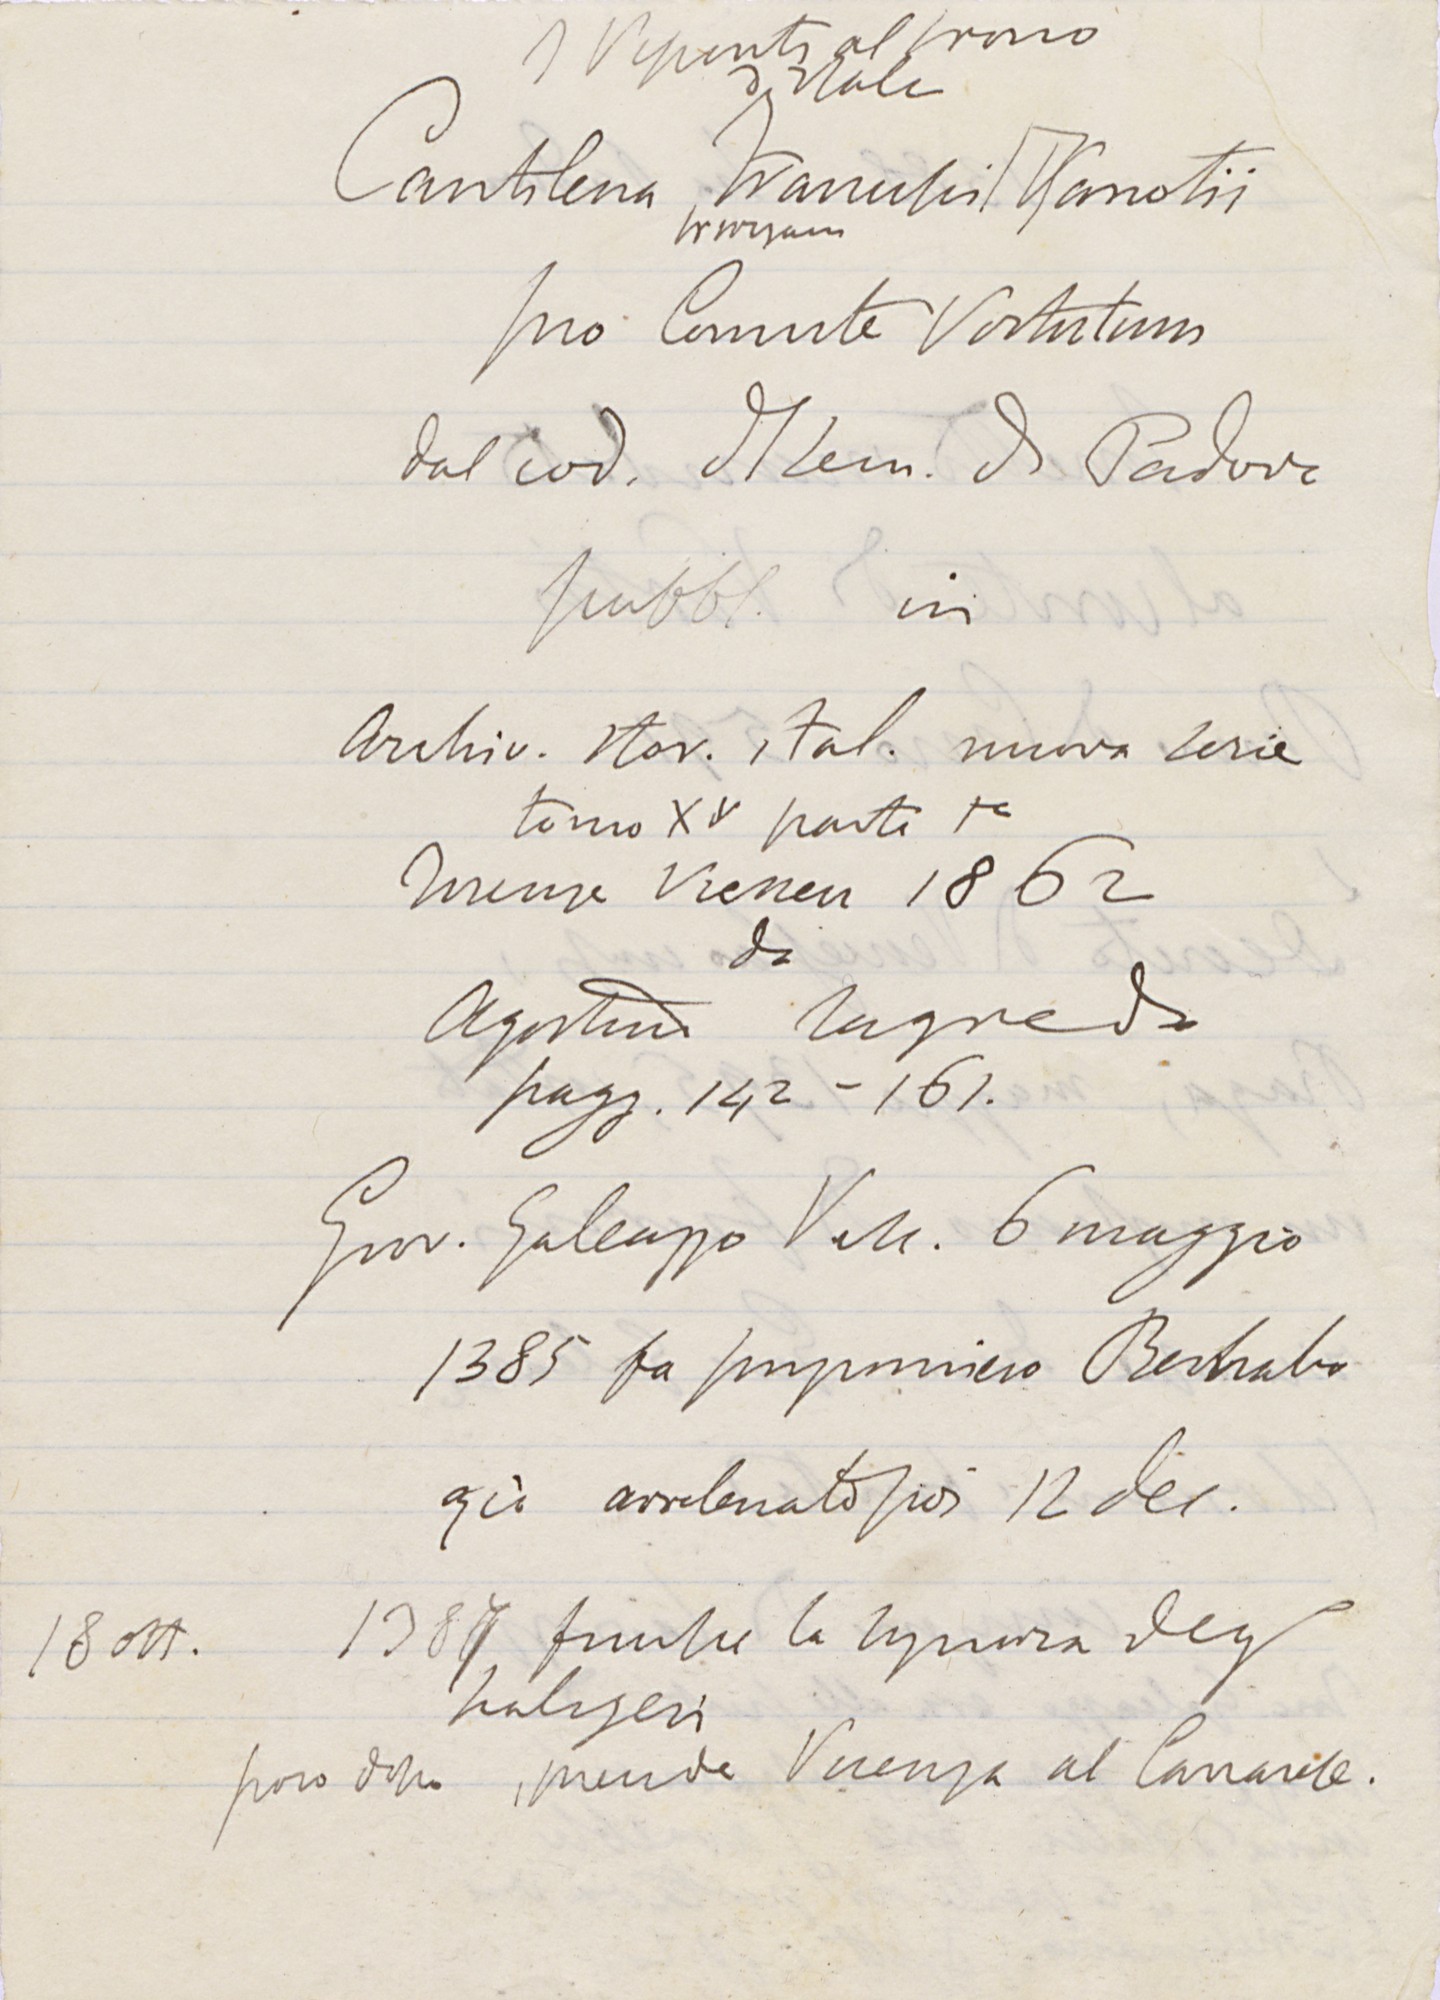 I Visconti al trono
d'Itale
Cantilena Francisci Vanotii
trivigiani
pro Comite Virtutum
dal cod. di Sem. di Padova
pubbl. in
Archiv. stor. ital. nuova serie
tomo XV parte 1a
Firenze Viesseu 1862
da
Agostino Sagredo
pagg. 142 - 161.
Giov. Galeazzo Visc. 6 maggio
1385 fa prigioniero Bernabo
già avvelenato poi 12 dec.
18 ott. 1387 finisce la signoria degl
scaligeri
poco dopo prende Vicenza al Carrarese.